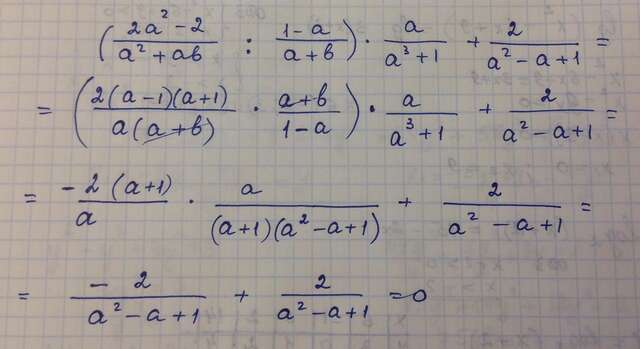 (\frac{2a² - 2}{a² + ab} : \frac{1 - a}{a + b}) · \frac{a}{a³ + 1} + \frac{2}{a² - a + 1} =
= (\frac{2(a - 1)(a + 1)}{a(a + b)} · \frac{a + b}{1 - a}) · \frac{a}{a³ + 1} + \frac{2}{a² - a + 1} =
= \frac{-2(a + 1)}{a} · \frac{a}{(a + 1)(a² - a + 1)} + \frac{2}{a² - a + 1} =
= \frac{-2}{a² - a + 1} + \frac{2}{a² - a + 1} = 0